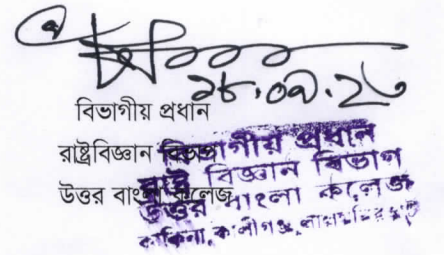 ১৮.০৯.২৩
বিভাগীয় প্রধান
রাষ্ট্রবিজ্ঞান বিভাগ
উত্তর বাংলা কলেজ
বিভাগীয় প্রধান
রাষ্ট্র বিজ্ঞান বিভাগ
উত্তর বাংলা কলেজ
কাকিনা, কালীগঞ্জ, লালমনিরহাট